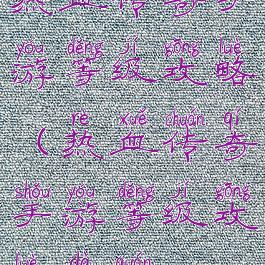 热血传奇
yóu děng jí gōng lüè
游等级攻略
rè xuè chuán qí
(热血传奇
shǒu yóu děng jí gōng
手游等级攻
lüè dà quán